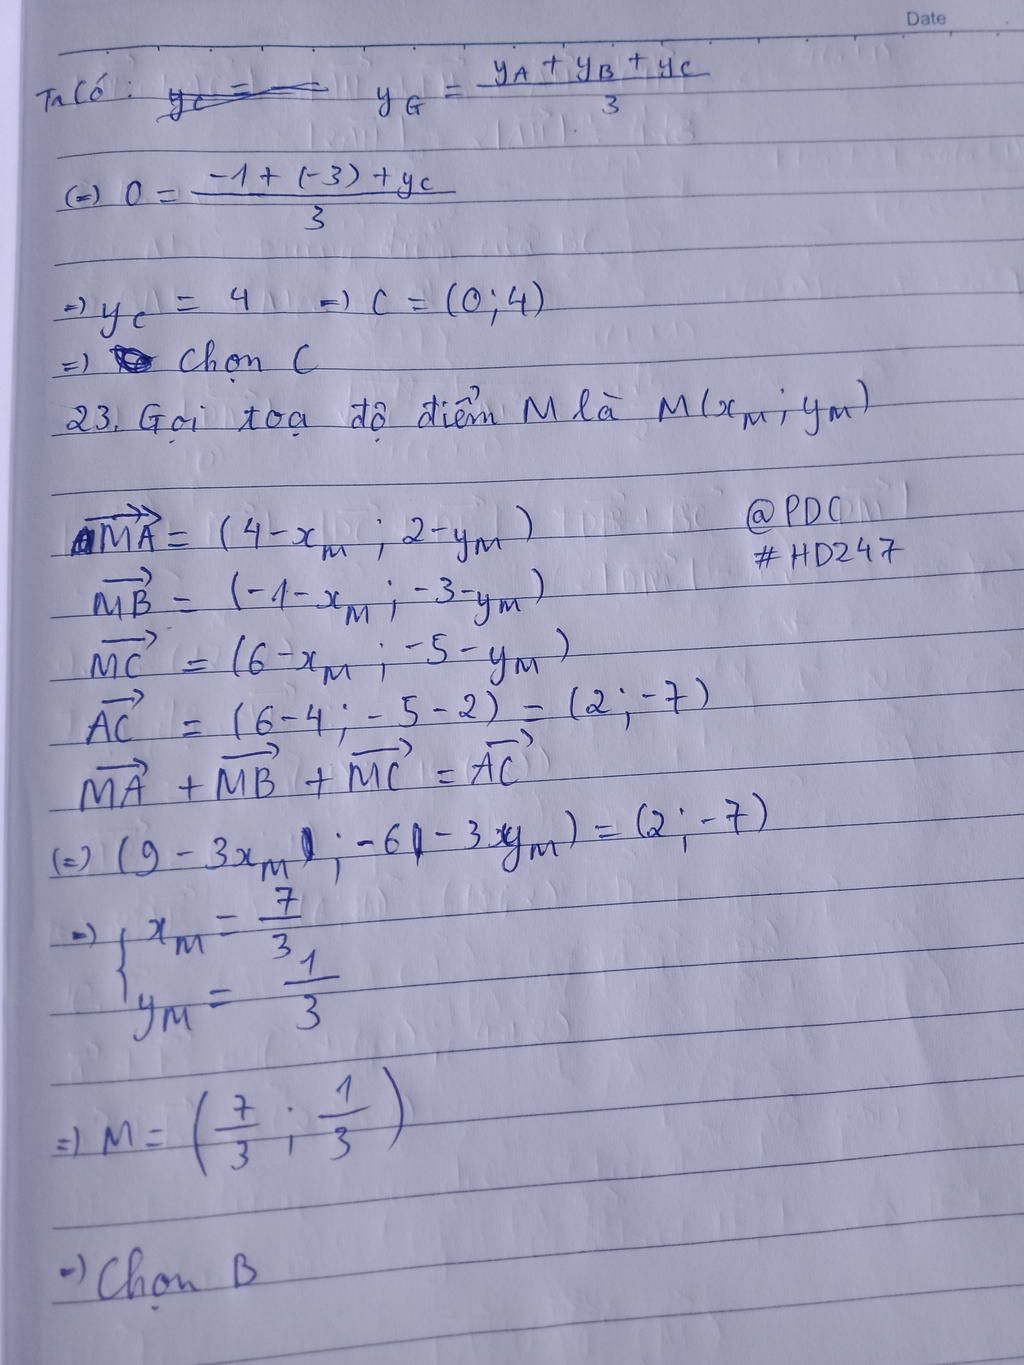 Date
Ta có: y_C = y_G = (y_A + y_B + y_C)/3
(=) 0 = (-1 + (-3) + y_C)/3
=) y_C = 4 =) C = (0; 4)
=) Chọn C
23. Gọi toạ độ điểm M là M(x_M; y_M)
MA = (4-x_M; 2-y_M)
@PDC
#HD247
MB = (-1-x_M; -3-y_M)
MC = (6-x_M; -5-y_M)
AC = (6-4; -5-2) = (2; -7)
MA + MB + MC = AC
(=) (9 - 3x_M; -6 - 3y_M) = (2; -7)
=) { x_M = 7/3
y_M = 1/3
=) M = (7/3; 1/3)
=) Chọn B